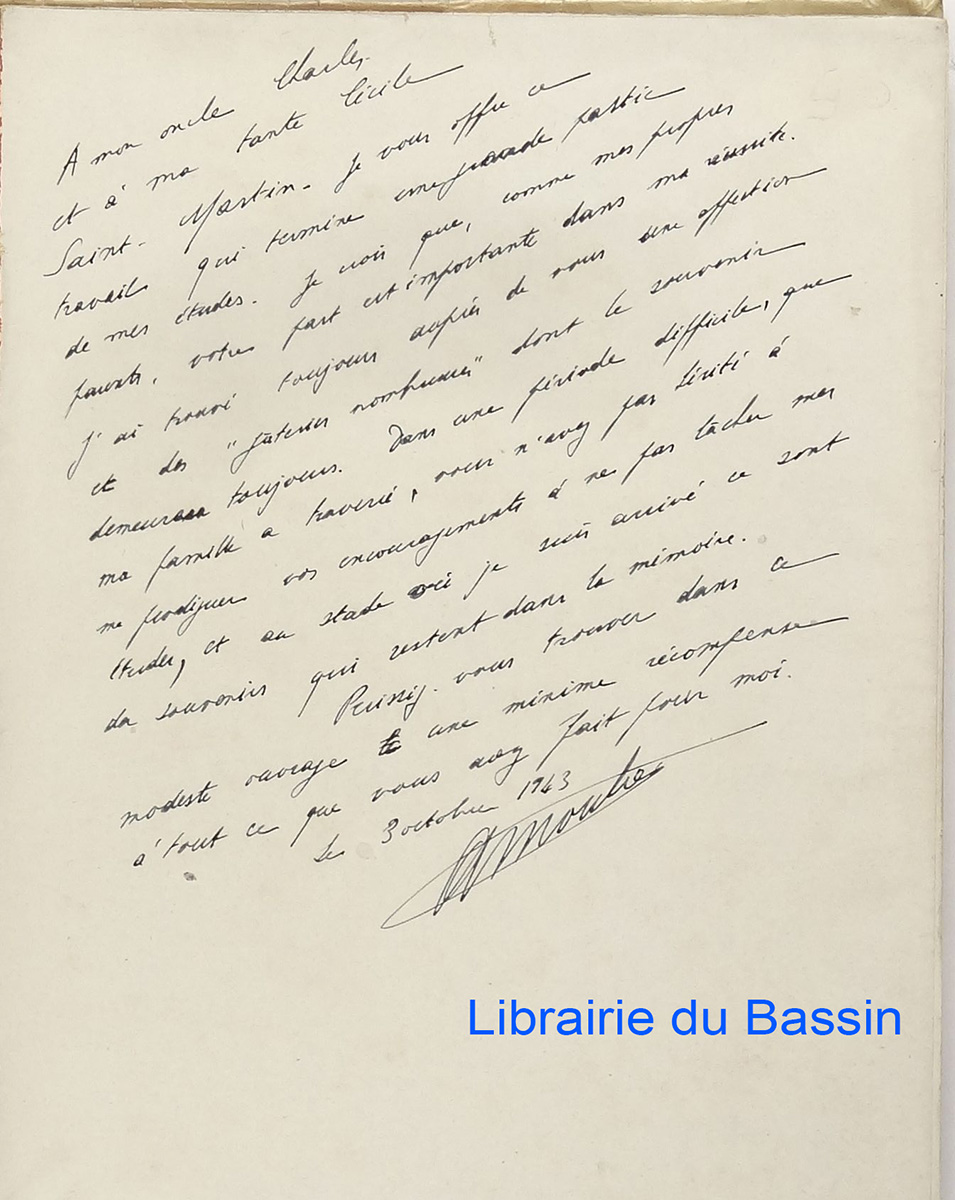 A mon oncle Charles
et à ma tante Cécile
Saint-Martin. Je vous offre ce
travail qui termine une grande partie
de mes études. Je crois que, comme mes propres
parents, votre part est importante dans ma réussite.
J'ai trouvé toujours auprès de vous une affection
et des "gâteries nombreuses" dont le souvenir
demeurera toujours. Dans une période difficile, que
ma famille a traversé, vous n'avez pas hésité à
me prodiguer vos encouragements à ne pas lâcher mes
études, et au stade où je suis arrivé ce sont
des souvenirs qui restent dans la mémoire.
Puissiez-vous trouver dans ce
modeste ouvrage une minime récompense
à tout ce que vous avez fait pour moi.
Le 3 octobre 1943
Librairie du Bassin